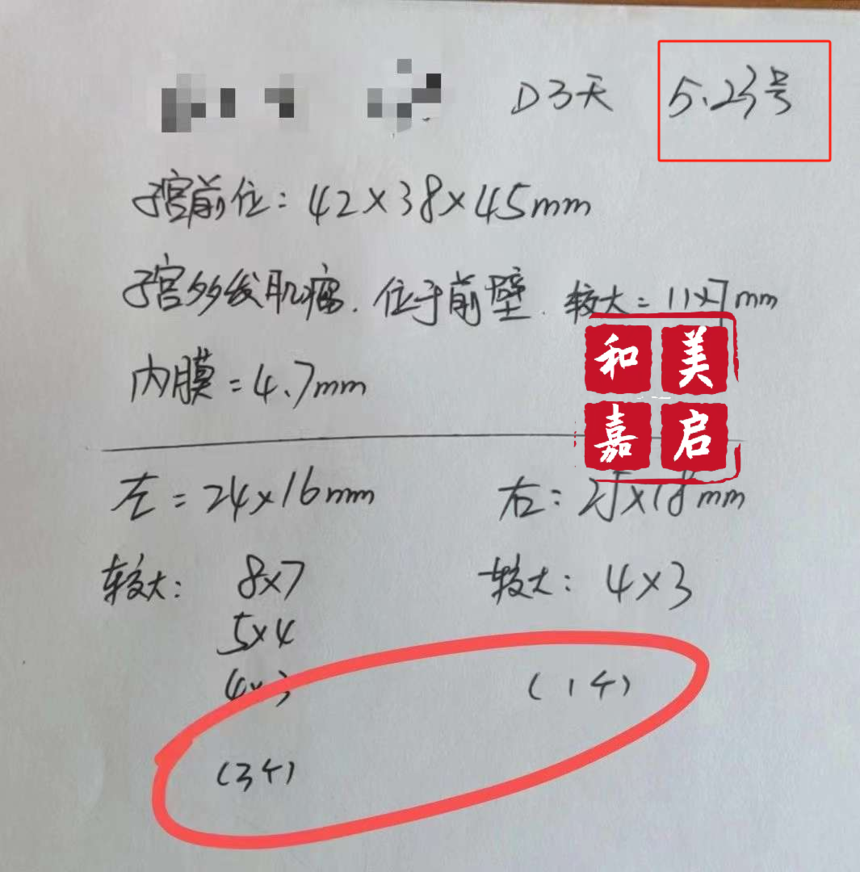 D3天 5.23号
子宫前位：42×38×45mm
子宫多发肌瘤．位于前壁．较大=11×7mm
和美
嘉启
内膜=4.7mm
左=24×16mm 右：25×18mm
较大： 8×7 较大：4×3
5×4
4×3 （1个）
（3个）